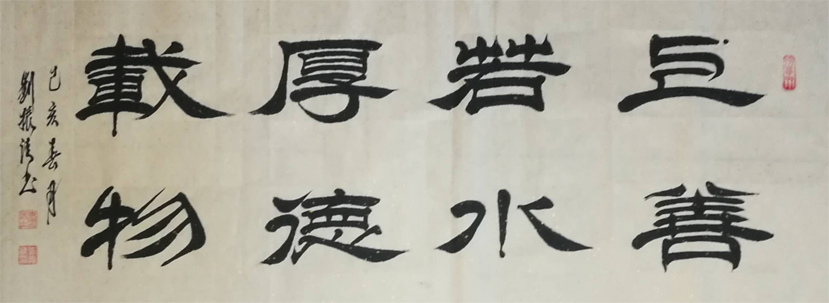 上善
若水
厚德
載物
己亥春月
劉振清书